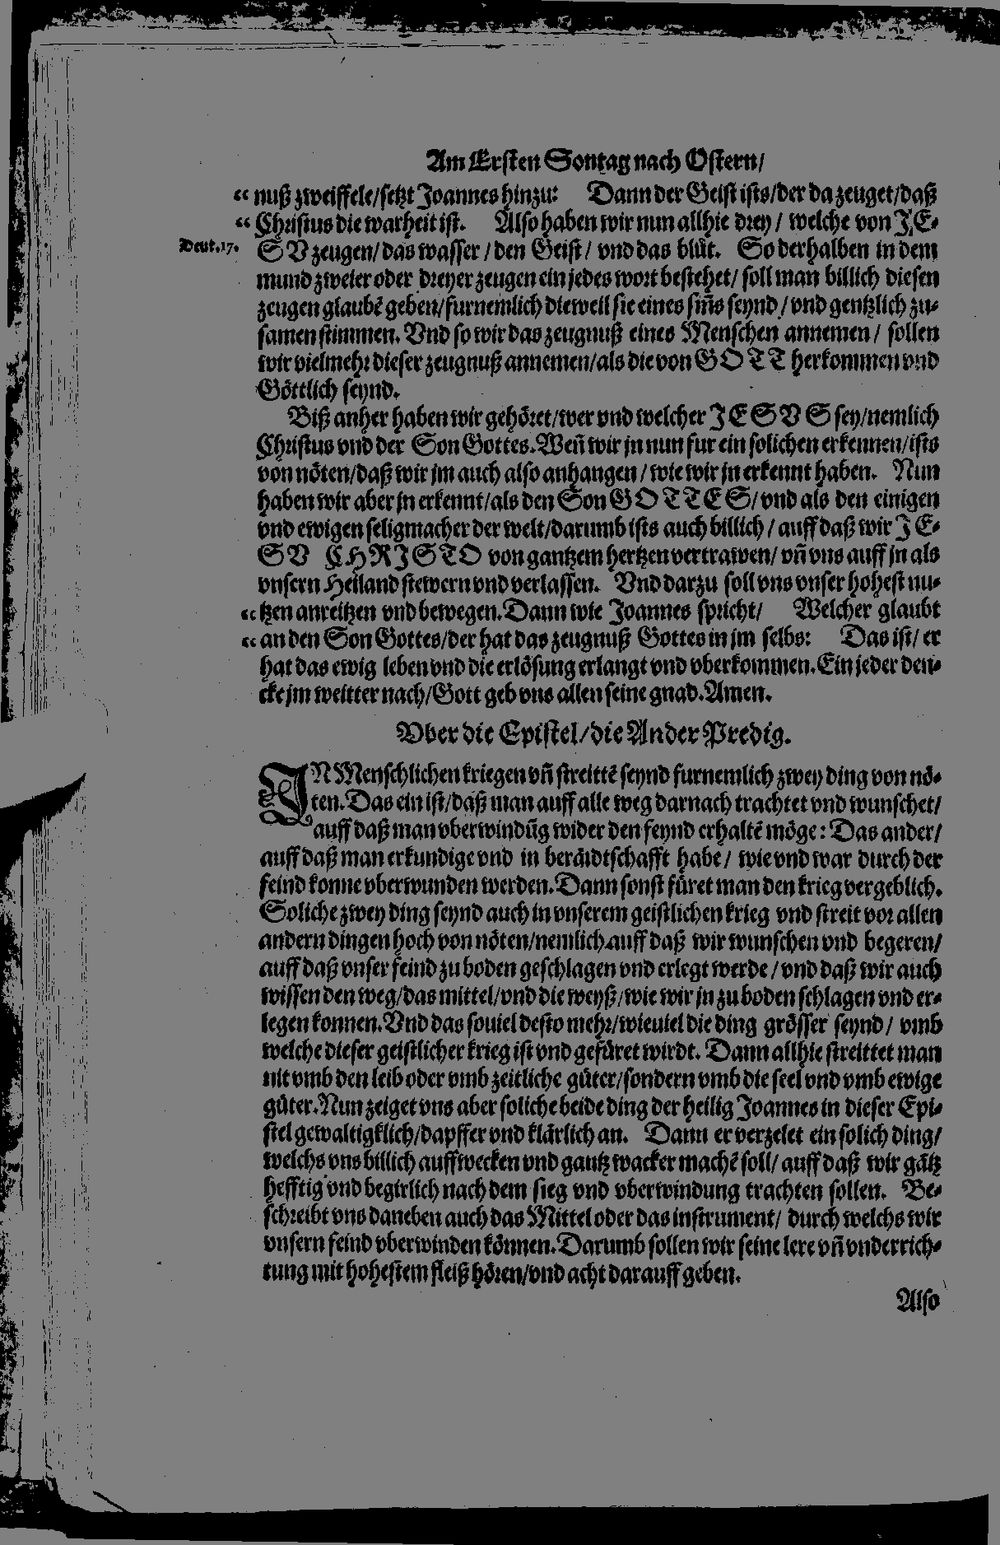 Am Ersten Sontag nach Ostern/
“ nuß zweiffele/setzt Joannes hinzu: Dann der Geist ists/der da zeuget/daß
“ Christus die warheit ist. Also haben wir nun allhie drey/ welche von JE-
Deut.17. SV zeugen/das wasser/den Geist/ vnd das blůt. So derhalben in dem
mund zweier oder dreyer zeugen ein jedes wort bestehet/ soll man billich diesen
zeugen glaubē geben/furnemlich dieweil sie eines siñs seynd/vnd gentzlich zu-
samen stimmen. Vnd so wir das zeugnuß eines Menschen annemen/ sollen
wir vielmehr dieser zeugnuß annemen/als die von GOTT herkommen vnd
Göttlich seynd.
Biß anher haben wir gehöret/wer vnd welcher JESVS sey/nemlich
Christus vnd der Son Gottes. Weñ wir jn nun fur ein solichen erkennen/ists
von nöten/daß wir jm auch also anhangen/wie wir jn erkennt haben. Nun
haben wir aber jn erkennt/als den Son GOTTES/vnd als den einigen
vnd ewigen seligmacher der welt/darumb ists auch billich/ auff daß wir JE-
SV CHRISTO von gantzem hertzen vertrawen/ vñ vns auff jn als
vnsern Heiland stewern vnd verlassen. Vnd darzu soll vns vnser hohest nu-
“ tzen anreitzen vnd bewegen. Dann wie Joannes spricht/ Welcher glaubt
“ an den Son Gottes/der hat das zeugnuß Gottes in jm selbs: Das ist/ er
hat das ewig leben vnd die erlösung erlangt vnd vberkommen. Ein jeder den-
cke jm weitter nach/Gott geb vns allen seine gnad. Amen.
Vber die Epistel/die Ander Predig.
IN Menschlichen kriegen vñ streittē seynd furnemlich zwey ding von nö-
ten. Das ein ist/daß man auff alle weg darnach trachtet vnd wunschet/
auff daß man vberwindūg wider den feynd erhaltē möge: Das ander/
auff daß man erkundige vnd in berädtschafft habe/ wie vnd war durch der
feind konne vberwunden werden. Dann sonst fůret man den krieg vergeblich.
Soliche zwey ding seynd auch in vnserem geistlichen krieg vnd streit vor allen
andern dingen hoch von nöten/nemlich auff daß wir wunschen vnd begeren/
auff daß vnser feind zu boden geschlagen vnd erlegt werde/vnd daß wir auch
wissen den weg/das mittel/vnd die weyß/wie wir jn zu boden schlagen vnd er-
legen konnen. Vnd das souiel desto mehr/wieuiel die ding grösser seynd/ vmb
welche dieser geistlicher krieg ist vnd gefůret wirdt. Dann allhie streittet man
nit vmb den leib oder vmb zeitliche gůter/sondern vmb die seel vnd vmb ewige
gůter. Nun zeiget vns aber soliche beide ding der heilig Joannes in dieser Epi-
stel gewaltigklich/dapffer vnd klärlich an. Dann er verzelet ein solich ding/
welchs vns billich auffwecken vnd gantz wacker machē soll/ auff daß wir gātz
hefftig vnd begirlich nach dem sieg vnd vberwindung trachten sollen. Be-
schreibt vns daneben auch das Mittel oder das instrument/ durch welchs wir
vnsern feind vberwinden können. Darumb sollen wir seine lere vñ vnderrich-
tung mit hohestem fleiß hören/vnd acht darauff geben.
Also